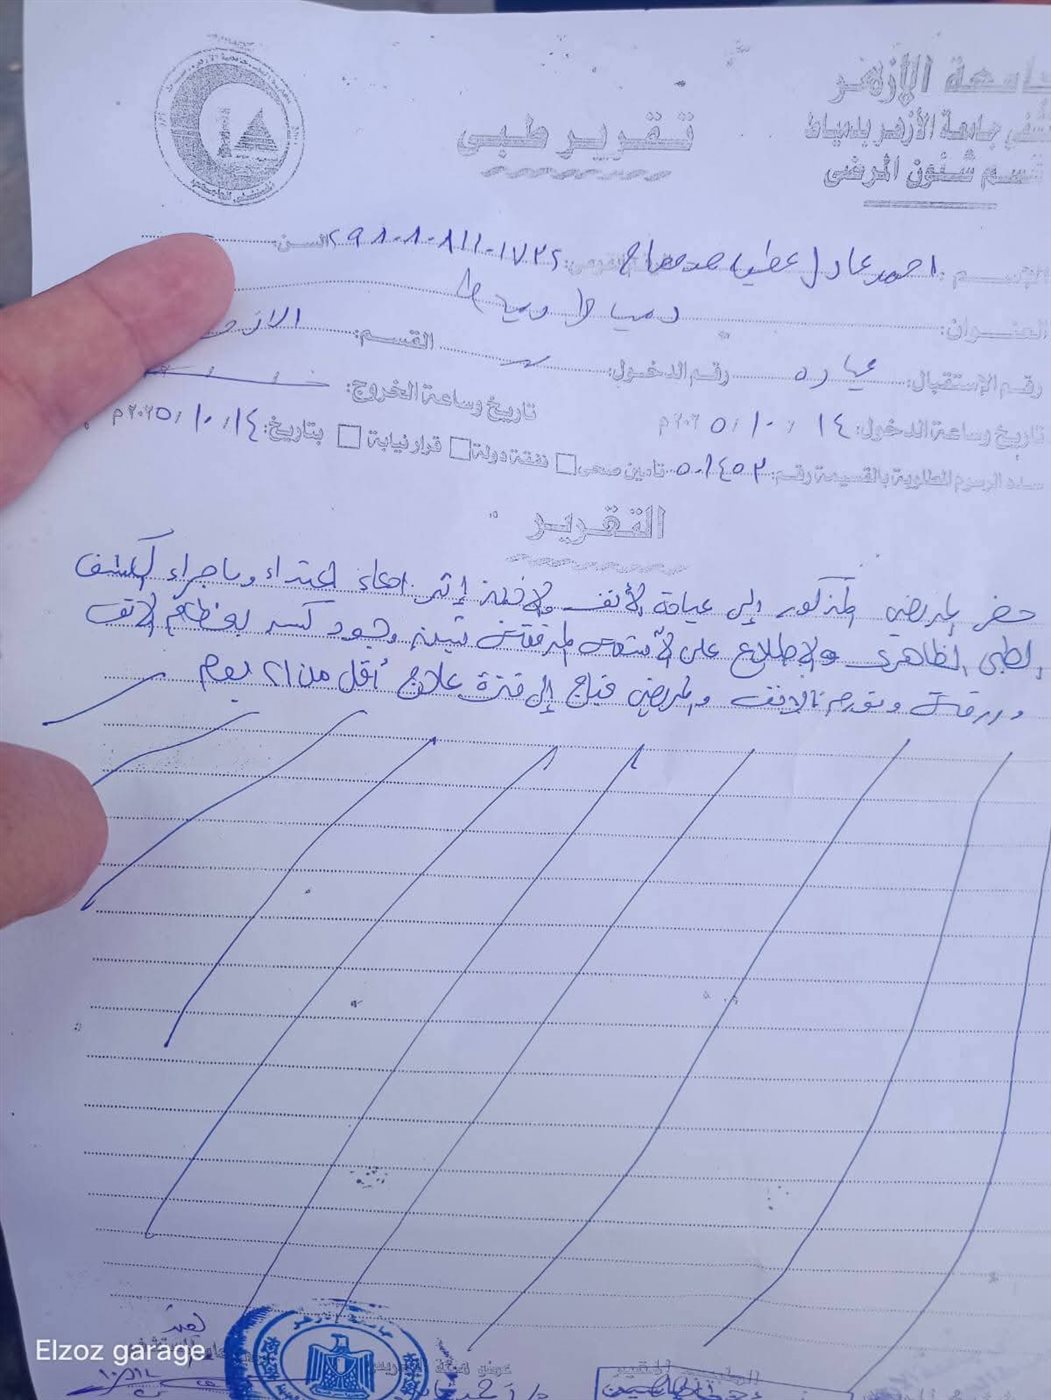 جامعة الأزهر
تقرير طبي
جامعة الأزهر بدمياط
قسم شئون المرضى
الإسم: احمد عادل عطيه ٢٩٨٠٨٠٨١١٠١٧٣٢ السن:
العنوان: دمياط دمياط
رقم الإستقبال: عياده رقم الدخول: القسم:
تاريخ وساعة الدخول: ١٤ / ١٠ / ٢٠٢٥م تاريخ وساعة الخروج:
سدد الرسوم المطلوبة بالقسيمة رقم: ٥٠١٤٥٢ تامين صحى نفقة دولة قرار نيابة بتاريخ: ١٤ / ١٠ / ٢٠٢٥م
التقرير
حضر المريض المذكور إلى عيادة الأنف والاذن إثر ادعاء اعتداء وباجراء الكشف
الطبى الظاهرى والإطلاع على الأشعة المرفقة تبين وجود كسر بعظام الأنف
وتورم بالانف والمريض يحتاج إلى فترة علاج أقل من ٢١ يوم
جامعة الأزهر
Elzoz garage